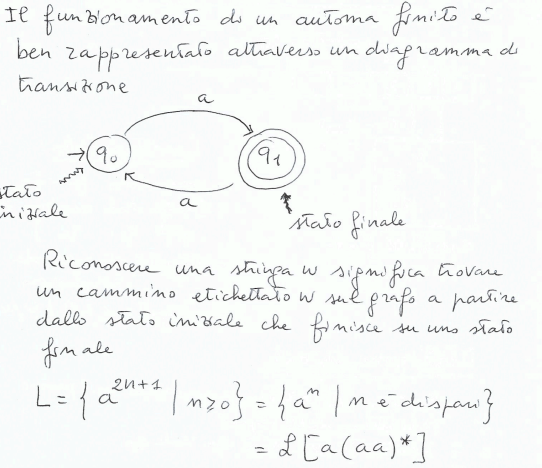 Il funzionamento di un automa finito è
ben rappresentato attraverso un diagramma di
transizione
a
→ q₀
q₁
stato
iniziale
a
stato finale
Riconoscere una stringa w significa trovare
un cammino etichettato w sul grafo a partire
dallo stato iniziale che finisce su uno stato
finale
L = { a^{2n+1} | n ≥ 0 } = { a^n | n è dispari }
= ℒ [ a(aa)* ]